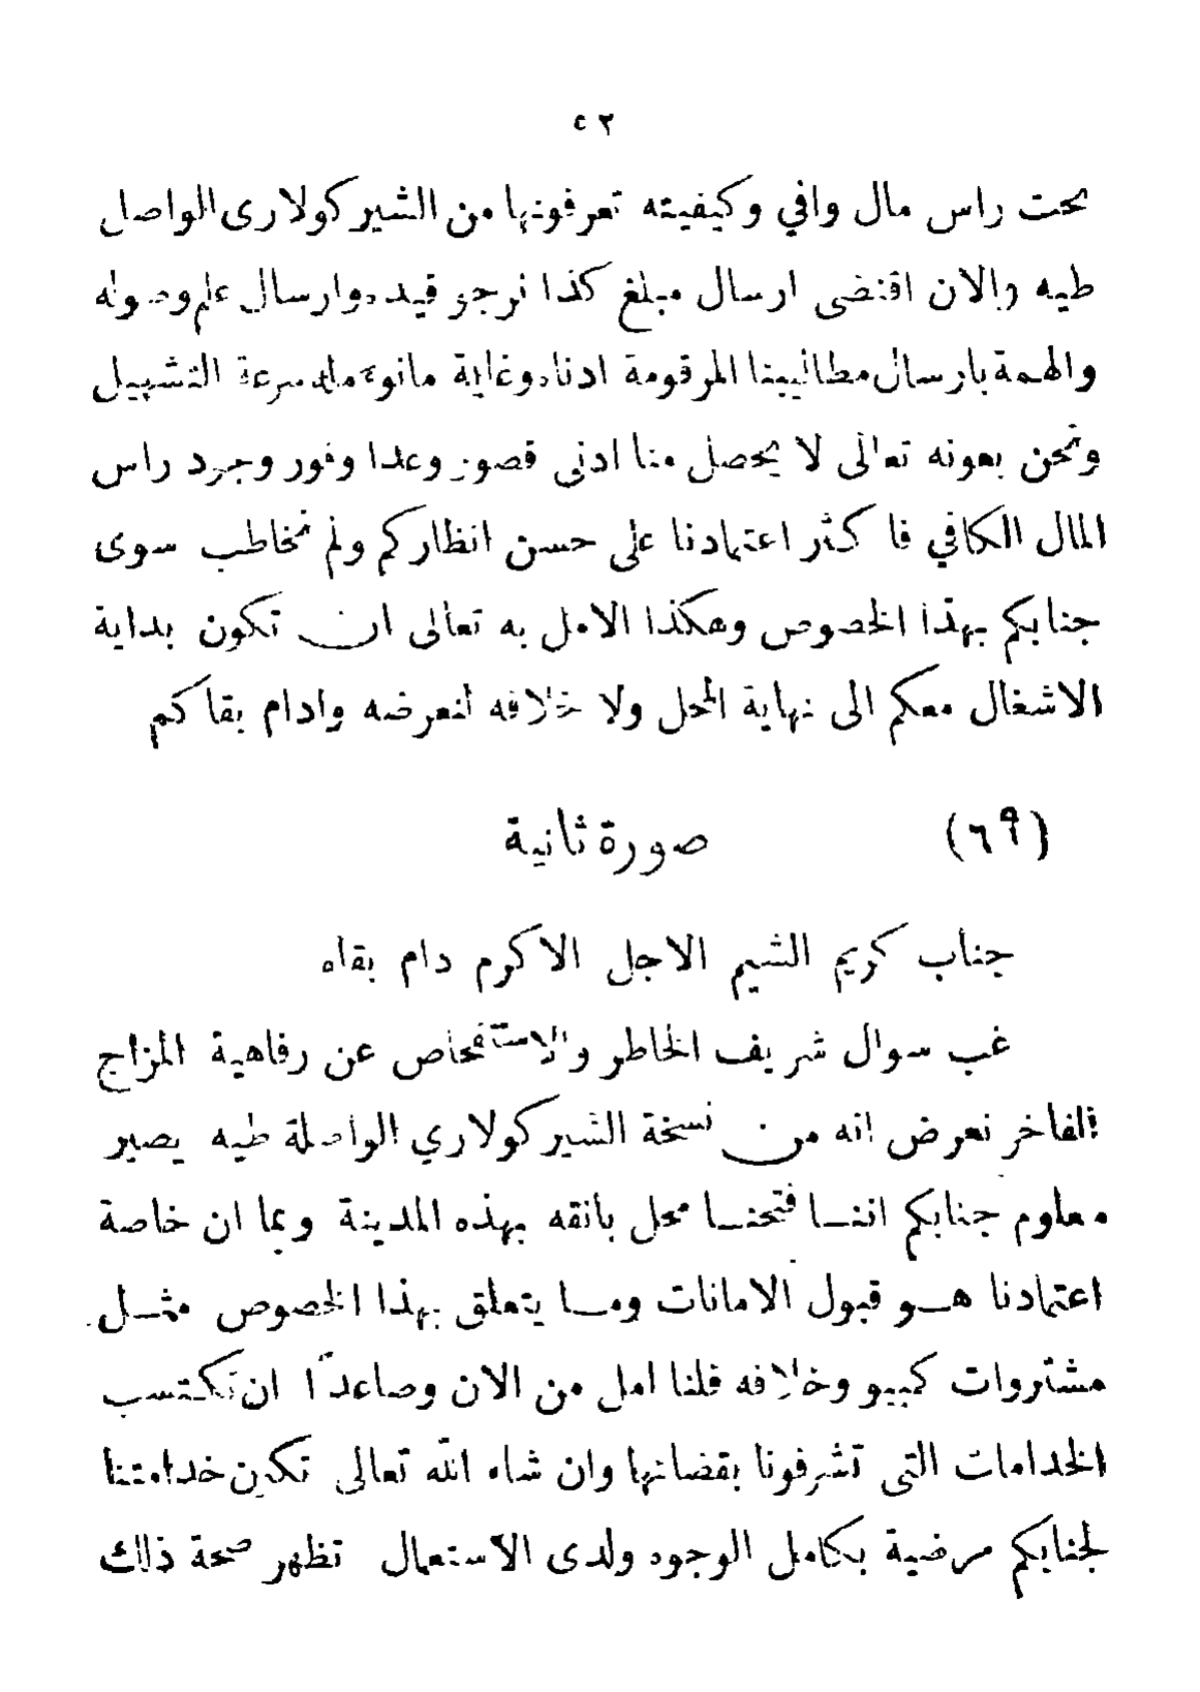 ٥٢
تحت راس مال وافي وكيفيته تعرفونها من الشيركولارى الواصل
طيه والان اقتضى ارسال مبلغ كذا نرجو قيده وارسال علم وصوله
والهمة بارسال مطاليبنا المرقومة ادناه وغاية مانوءمله سرعة التشهيل
ونحن بعونه تعالى لا يحصل منا ادنى قصور وعدا وفور وجود راس
المال الكافي فاكثر اعتمادنا على حسن انظاركم ولم نخاطب سوى
جنابكم بهذا الخصوص وهكذا الامل به تعالى ان تكون بداية
الاشغال معكم الى نهاية المحل ولا خلافه لنعرضه وادام بقاكم
(٦٩) صورة ثانية
جناب كريم الشيم الاجل الاكرم دام بقاه
غب سوال شريف الخاطر والاستفحاص عن رفاهية المزاج
الفاخر نعرض انه من نسخة الشيركولاري الواصلة طيه يصير
معلوم جنابكم اننا فتحنا محل بانقه بهذه المدينة وبما ان خاصة
اعتمادنا هو قبول الامانات وما يتعلق بهذا الخصوص مثل
مشتروات كمبيو وخلافه فلنا امل من الان وصاعدًا ان نكتسب
الخدامات التى تشرفونا بقضائها وان شاء الله تعالى تكون خدامتنا
لجنابكم مرضية بكامل الوجوه ولدى الاستعمال تظهر صحة ذلك